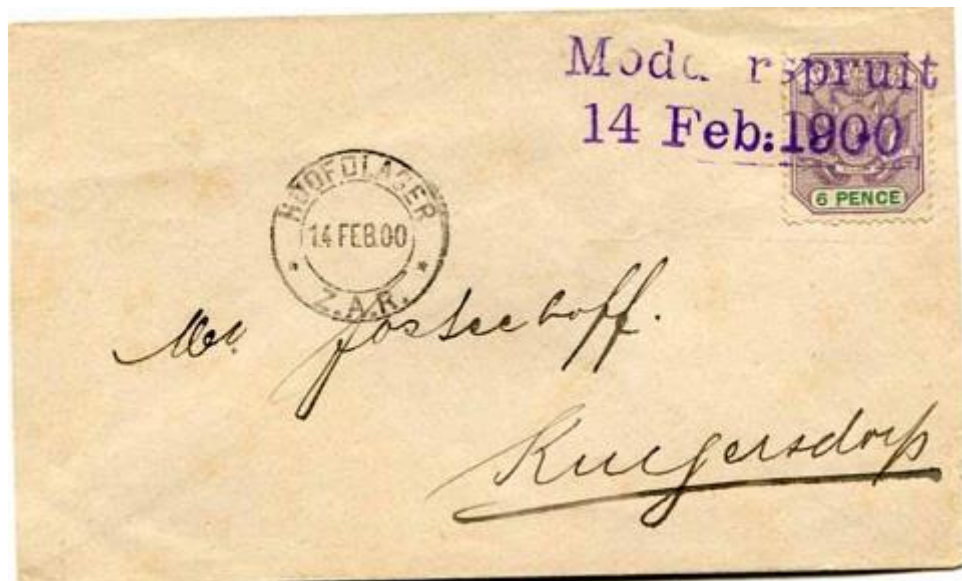 Modd rspruit
14 Feb:1900
6 PENCE
HOOFDLAGER
14 FEB.00
Z.A.R.
Krugersdorp